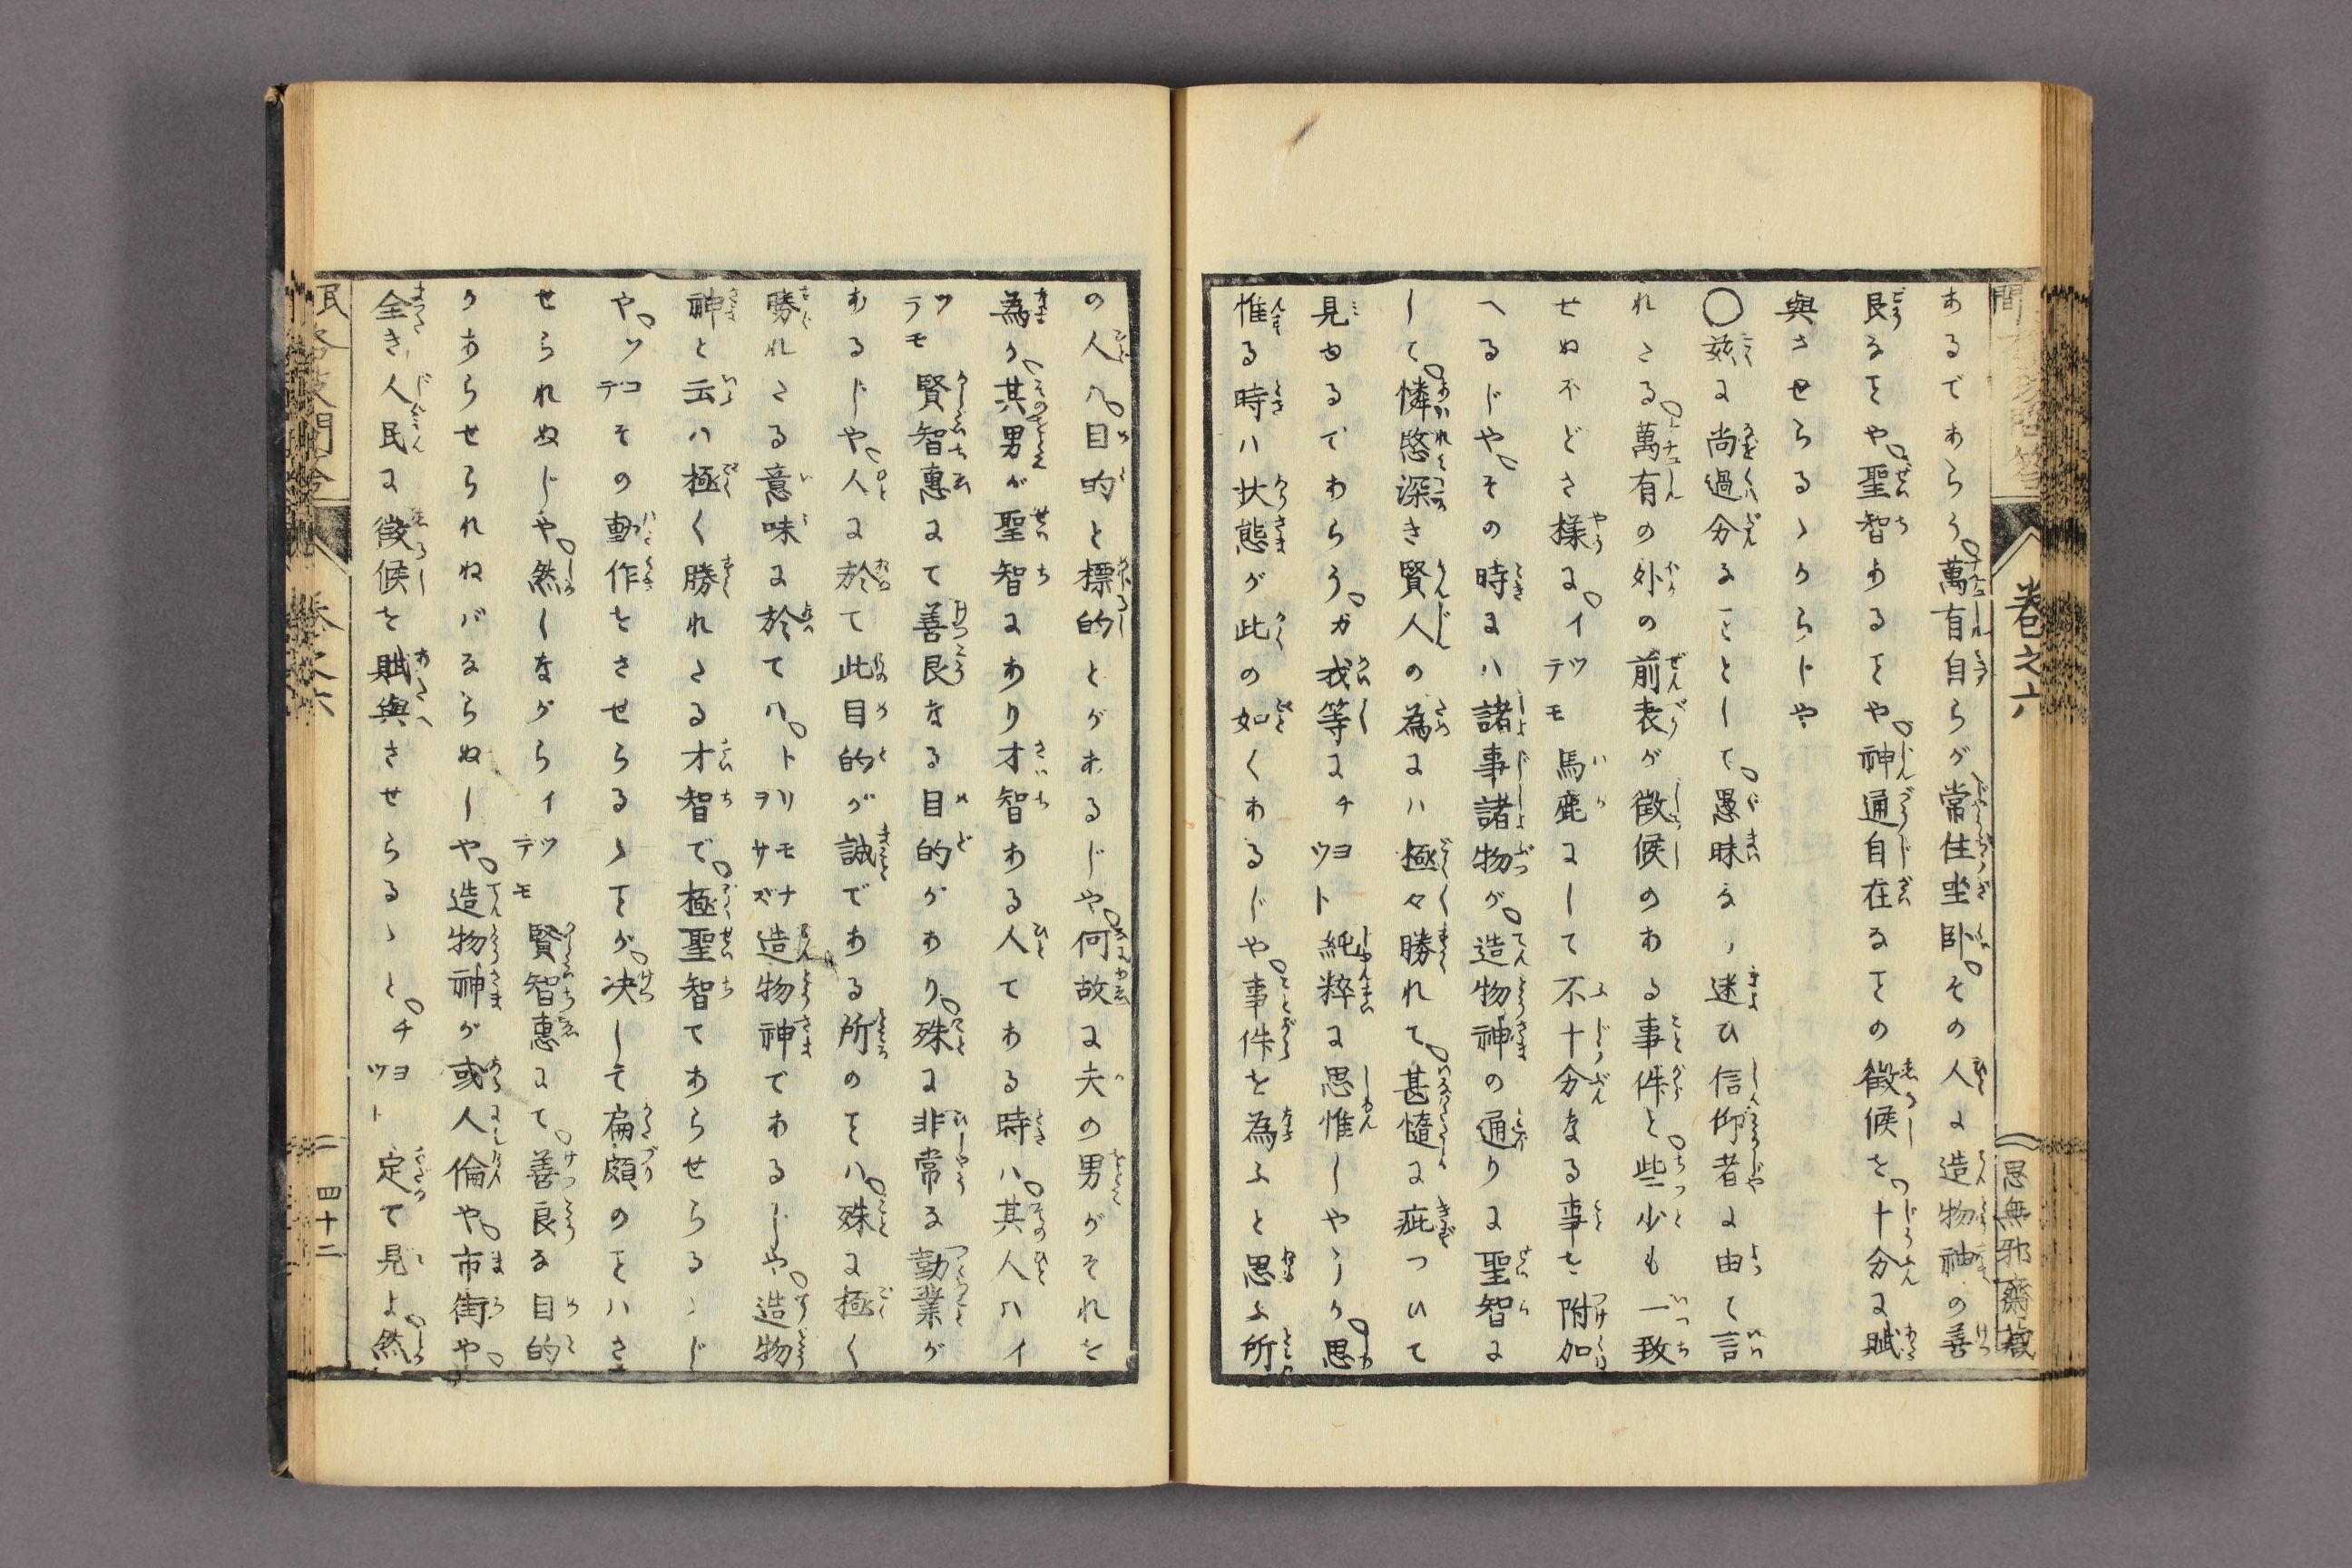 あるであらう萬有自らが常住坐臥その人に造物神の善
良なをや聖智あるをや神通自在なをの徴候を十分に賦
與させらるゝからじや
〇茲に尚過分なことして愚昧な迷ひ信仰者に由て言
れたる萬有の外の前表が徴候のある事件と些少も一致
せぬ不どさ様にイツデモ馬鹿にして不十分なる事を附加
へるじやその時にハ諸事諸物が造物神の通りに聖智に
して憐愍深き賢人の為にハ極々勝れて甚髓に疵つひて
見ゆるでわらうガ我等にチヨツト純粹に思惟しやうか思
惟る時ハ状態が此の如くあるじや事件を為ふと思ふ所
卷之六
思無邪齋藏
の人ハ目的と標的とがあるじや何故に夫の男がそれを
為か其男が聖智にあり才智ある人てある時ハ其人ハイ
ツラモ賢智惠にて善良なる目的がわり殊に非常な勤業が
あるじや人に於て此目的が誠である所のをハ殊に極く
勝れたる意味に於てハトリモナヲサズ造物神であるじや造物
神と云ハ極く勝れたる才智で極聖智てあらせらるゝじ
やソコデその動作をさせらるゝをが决して扁頗のをハさ
せられぬじや然しながらイツデモ賢智惠にて善良な目的
かあらせられねバならぬしや造物神が或人倫や市街や
全き人民に徴候を賦與させらるゝとチヨツト定て見よ然
四十二